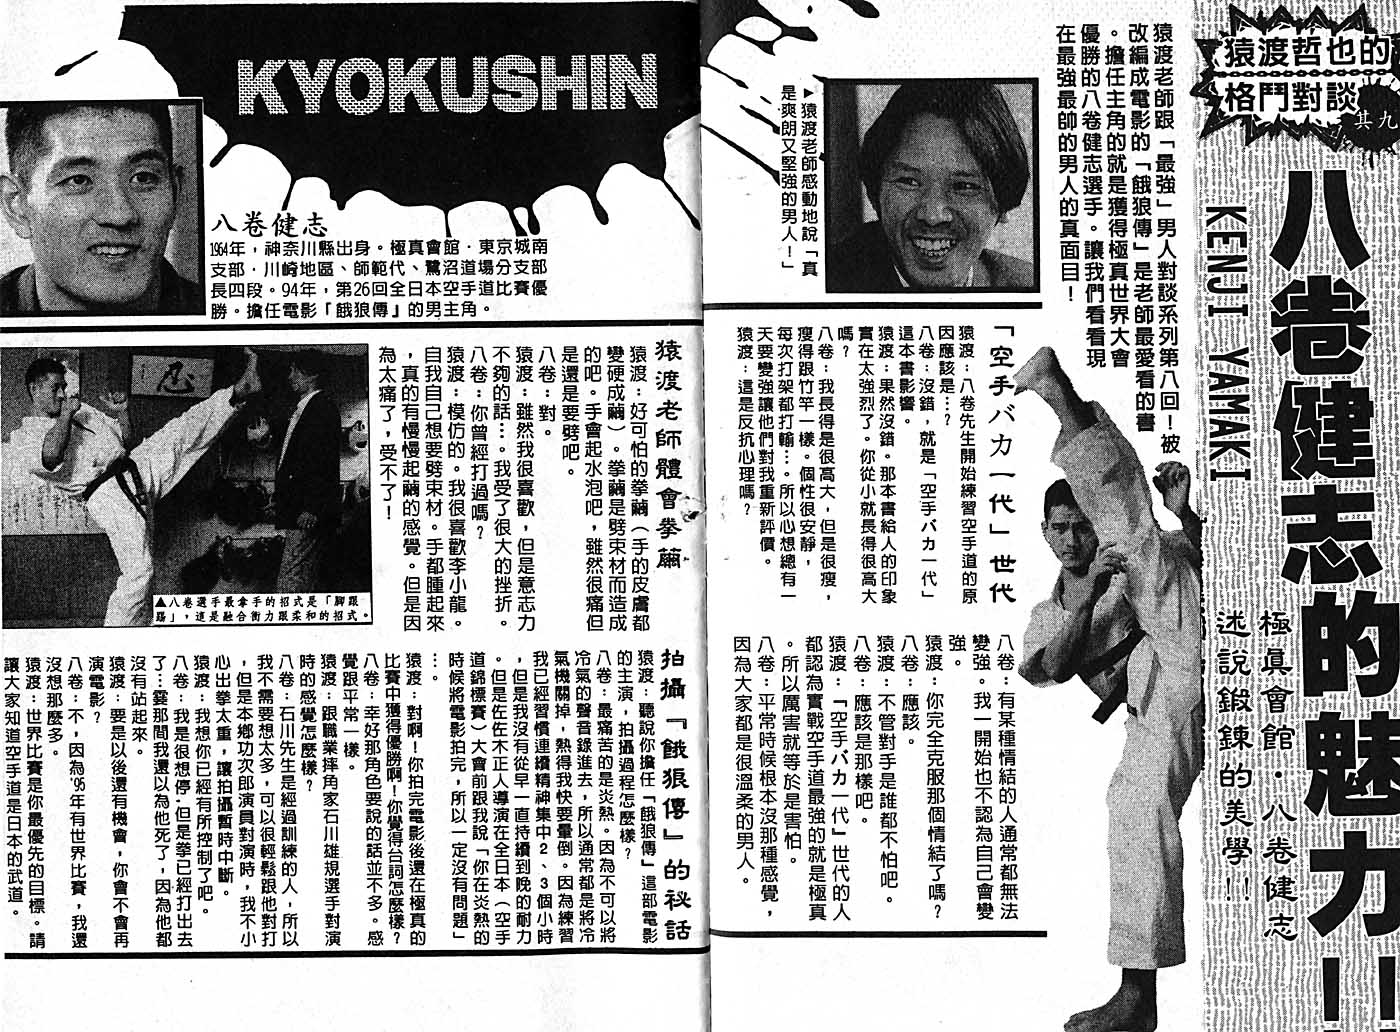 猿渡哲也的
格鬥對談
其九
八卷健志的魅力!!
KENJI YAMAKI
極真會館·八卷健志
述說鍛鍊的美學!!
猿渡老師跟「最強」男人對談系列第八回！被
改編成電影的「餓狼傳」是老師最愛看的書
。擔任主角的就是獲得極真世界大會
優勝的八卷健志選手。讓我們看看現
在最強最帥的男人的真面目！
▶猿渡老師感動地說「真
是爽朗又堅強的男人！」
「空手バカ一代」世代
猿渡：八卷先生開始練習空手道的原
因應該是…？
八卷：沒錯，就是「空手バカ一代」
這本書影響。
猿渡：果然沒錯。那本書給人的印象
實在太強烈了。你從小就長得很高大
嗎？
八卷：我長得是很高大，但是很瘦，
瘦得跟竹竿一樣。個性很安靜，
每次打架都打輸…。所以心想總有一
天要變強讓他們對我重新評價。
猿渡：這是反抗心理嗎？
八卷：有某種情結的人通常都無法
變強。我一開始也不認為自己會變
強。
猿渡：你完全克服那個情結了嗎？
八卷：應該。
猿渡：不管對手是誰都不怕吧。
八卷：應該是那樣吧。
猿渡：「空手バカ一代」世代的人
都認為實戰空手道最強的就是極真
。所以厲害就等於是害怕。
八卷：平常時候根本沒那種感覺，
因為大家都是很溫柔的男人。
KYOKUSHIN
八卷健志
1964年，神奈川縣出身。極真會館·東京城南
支部·川崎地區、師範代、鷺沼道場分支部
長四段。94年，第26回全日本空手道比賽優
勝。擔任電影「餓狼傳」的男主角。
▲八卷選手最拿手的招式是「腳跟
踢」，這是融合衝力跟柔和的招式。
猿渡老師體會拳繭
猿渡：好可怕的拳繭（手的皮膚都
變硬成繭）。拳繭是劈束材而造成
的吧。手會起水泡吧，雖然很痛但
是還是要劈吧。
八卷：對。
猿渡：雖然我很喜歡，但是意志力
不夠的話…。我受了很大的挫折。
八卷：你曾經打過嗎？
猿渡：模仿的。我很喜歡李小龍。
自我自己想要劈束材。手都腫起來
，真的有慢慢起繭的感覺。但是因
為太痛了，受不了！
拍攝『餓狼傳』的秘話
猿渡：聽說你擔任「餓狼傳」這部電影
的主演，拍攝過程怎麼樣？
八卷：最痛苦的是炎熱。因為不可以將
冷氣的聲音錄進去，所以通常都是將冷
氣機關掉，熱得我快要暈倒。因為練習
我已經習慣連續精神集中2、3個小時
，但是我沒有從早一直持續到晚的耐力
。但是佐佐木正人導演在全日本（空手
道錦標賽）大會前跟我說「你在炎熱的
時候將電影拍完，所以一定沒有問題」
…。
猿渡：對啊！你拍完電影後還在極真的
比賽中獲得優勝啊！你覺得台詞怎麼樣？
八卷：幸好那角色要說的話並不多。感
覺跟平常一樣。
猿渡：跟職業摔角家石川雄規選手對演
時的感覺怎麼樣？
八卷：石川先生是經過訓練的人，所以
我不需要想太多，可以很輕鬆跟他對打
，但是本鄉功次郎演員對演時，我不小
心出拳太重，讓拍攝暫時中斷。
猿渡：我想你已經有所控制了吧。
八卷：我是很想停，但是拳已經打出去
了…霎那間我還以為他死了，因為他都
沒有站起來。
猿渡：要是以後還有機會，你會不會再
演電影？
八卷：不，因為'95年有世界比賽，我還
沒想那麼多。
猿渡：世界比賽是你最優先的目標。請
讓大家知道空手道是日本的武道。